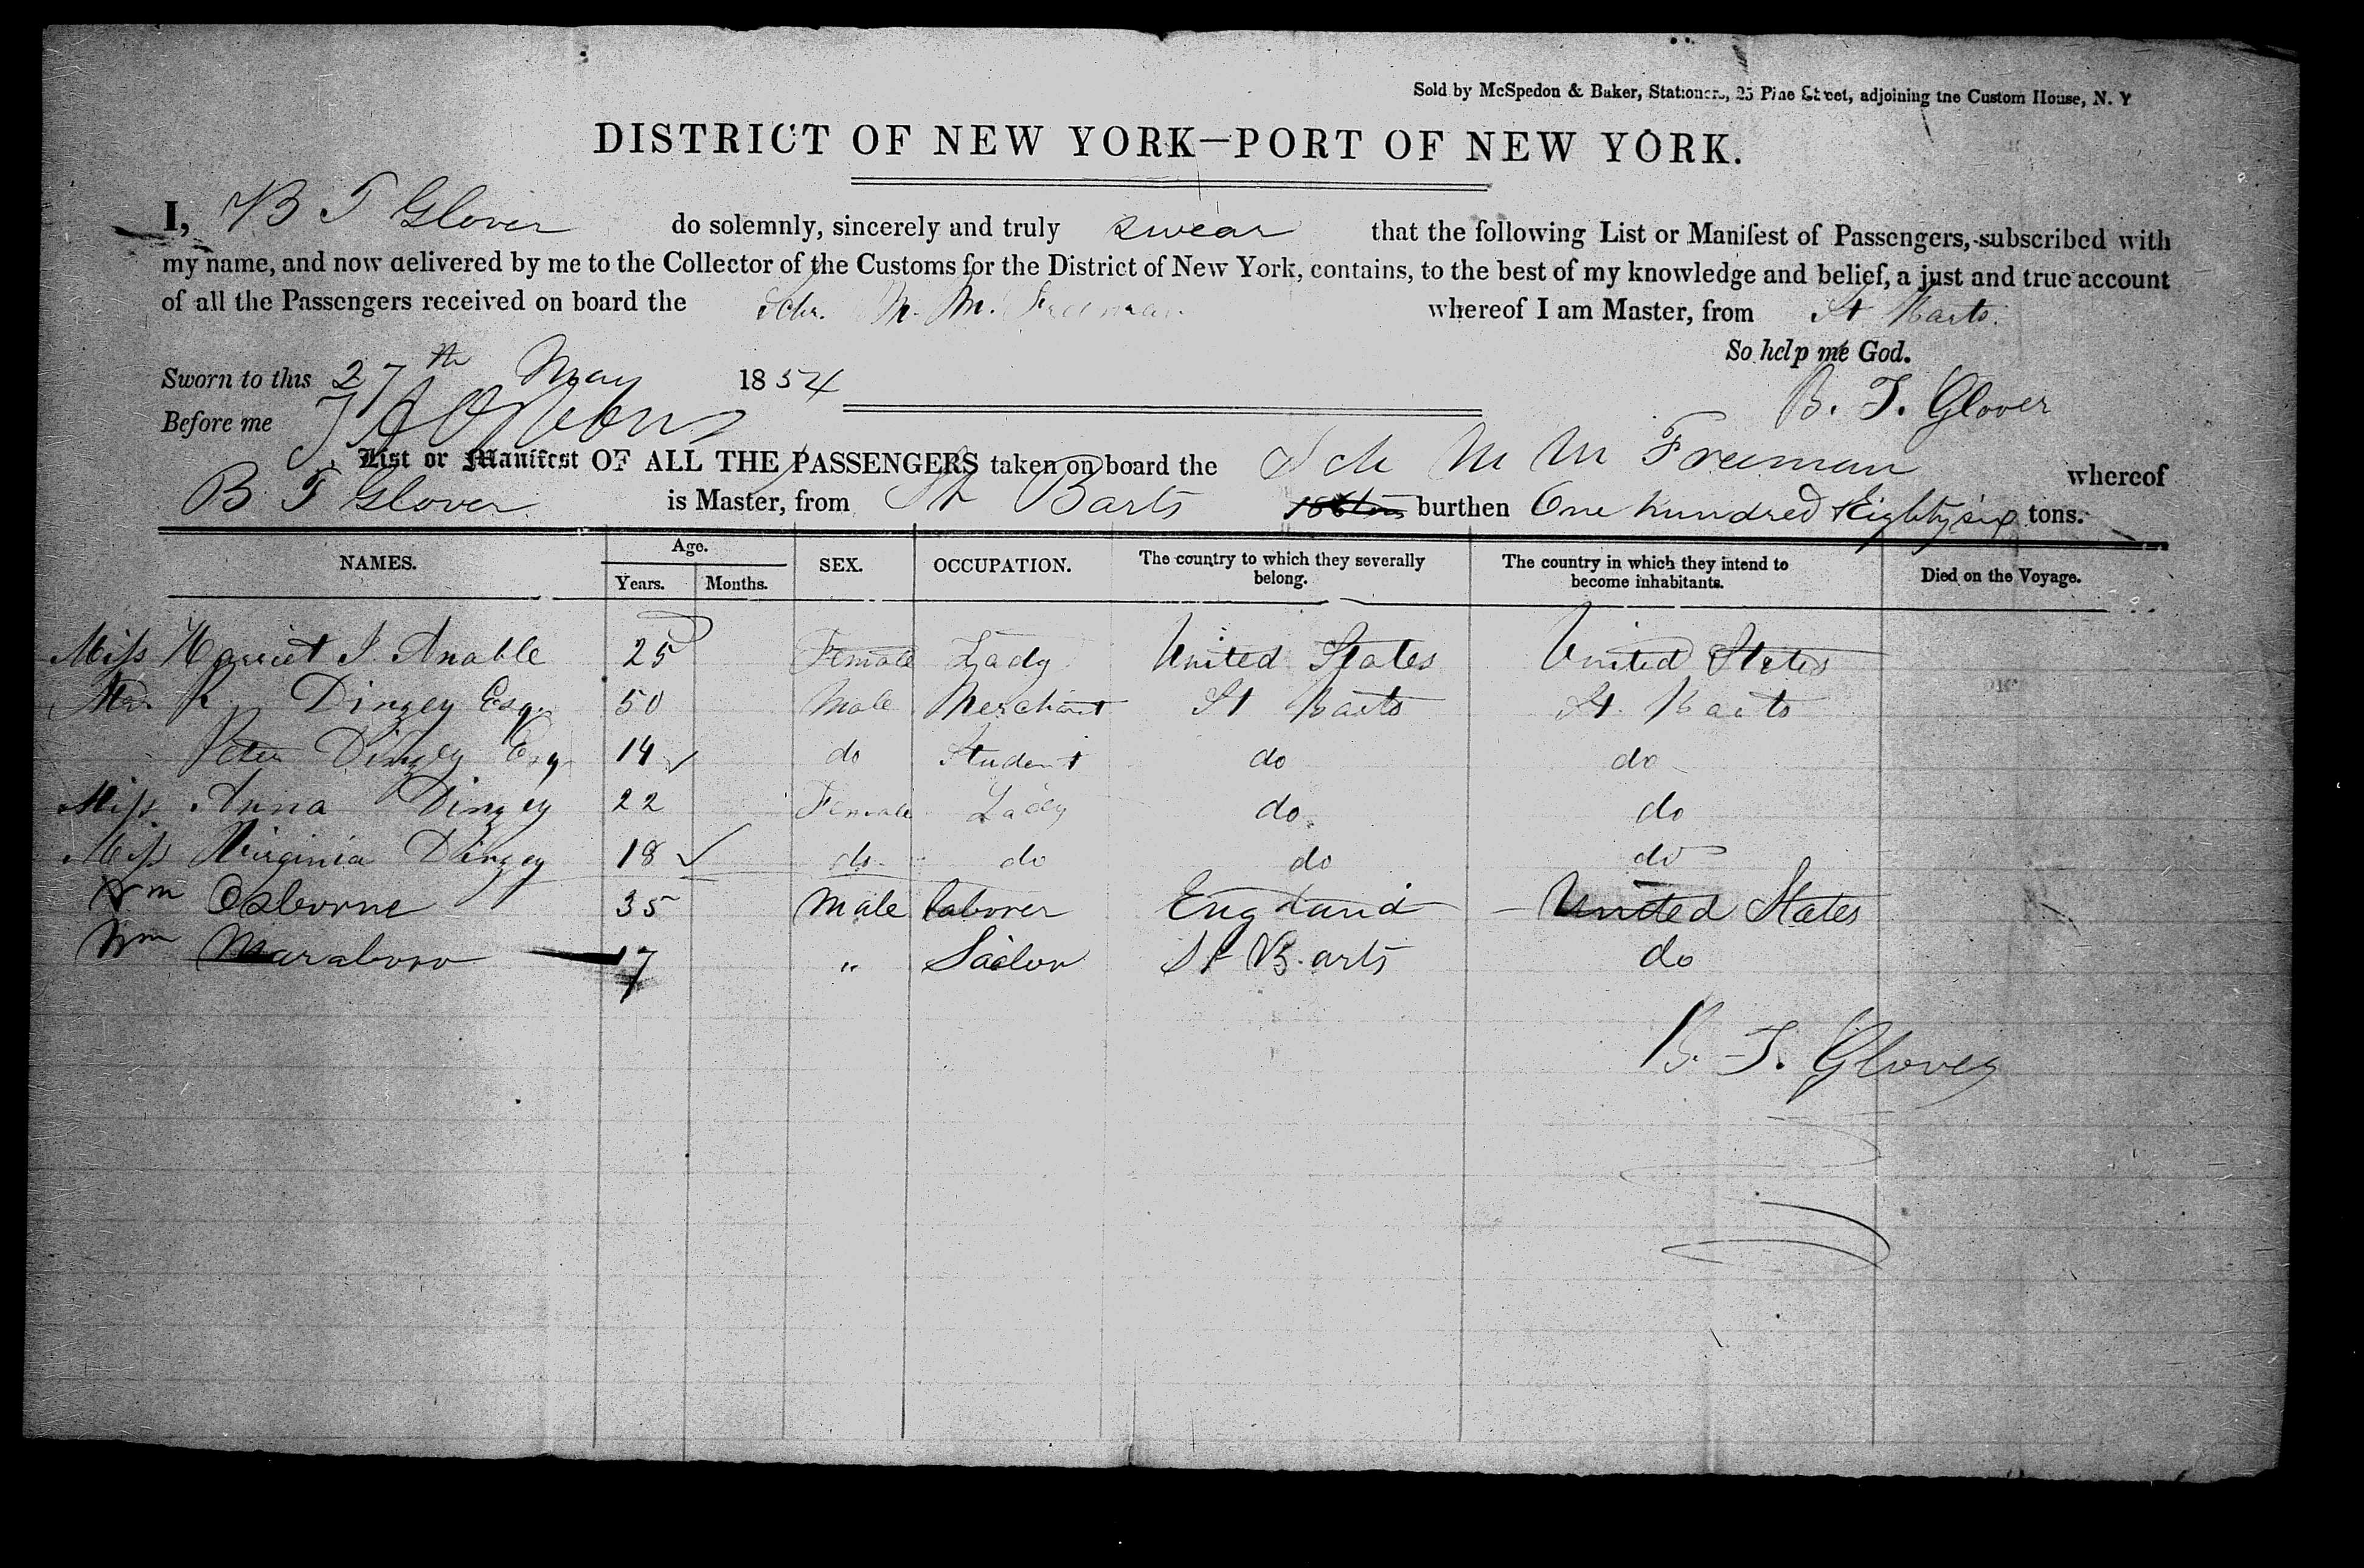 Sold by McSpedon & Baker, Stationers, 25 Pine Street, adjoining the Custom House, N. Y
DISTRICT OF NEW YORK—PORT OF NEW YORK.
I, B T Glover do solemnly, sincerely and truly swear that the following List or Manifest of Passengers, subscribed with
my name, and now delivered by me to the Collector of the Customs for the District of New York, contains, to the best of my knowledge and belief, a just and true account
of all the Passengers received on board the Schr. M. M. Freeman whereof I am Master, from St Barts.
So help me God.
Sworn to this 27th May 1854
B. T. Glover
Before me
List or Manifest OF ALL THE PASSENGERS taken on board the Sch M M Freeman whereof
B T Glover is Master, from St Barts burthen One hundred & Eighty six tons.
NAMES. Age. Years. Months. SEX. OCCUPATION. The country to which they severally belong. The country in which they intend to become inhabitants. Died on the Voyage.
Miss Harriet J. Anable 25 Female Lady United States United States
R Dinzey Esq. 50 Male Merchant St Barts St. Barts
Peter Dinzey Esq 14 do Student do do
Miss Anna Dinzey 22 Female Lady do do
Miss Virginia Dinzey 18 do do do do
Wm Osborne 35 Male laborer England United States
Wm Maraboro 17 " Sailor St Barts do
B. T. Glover